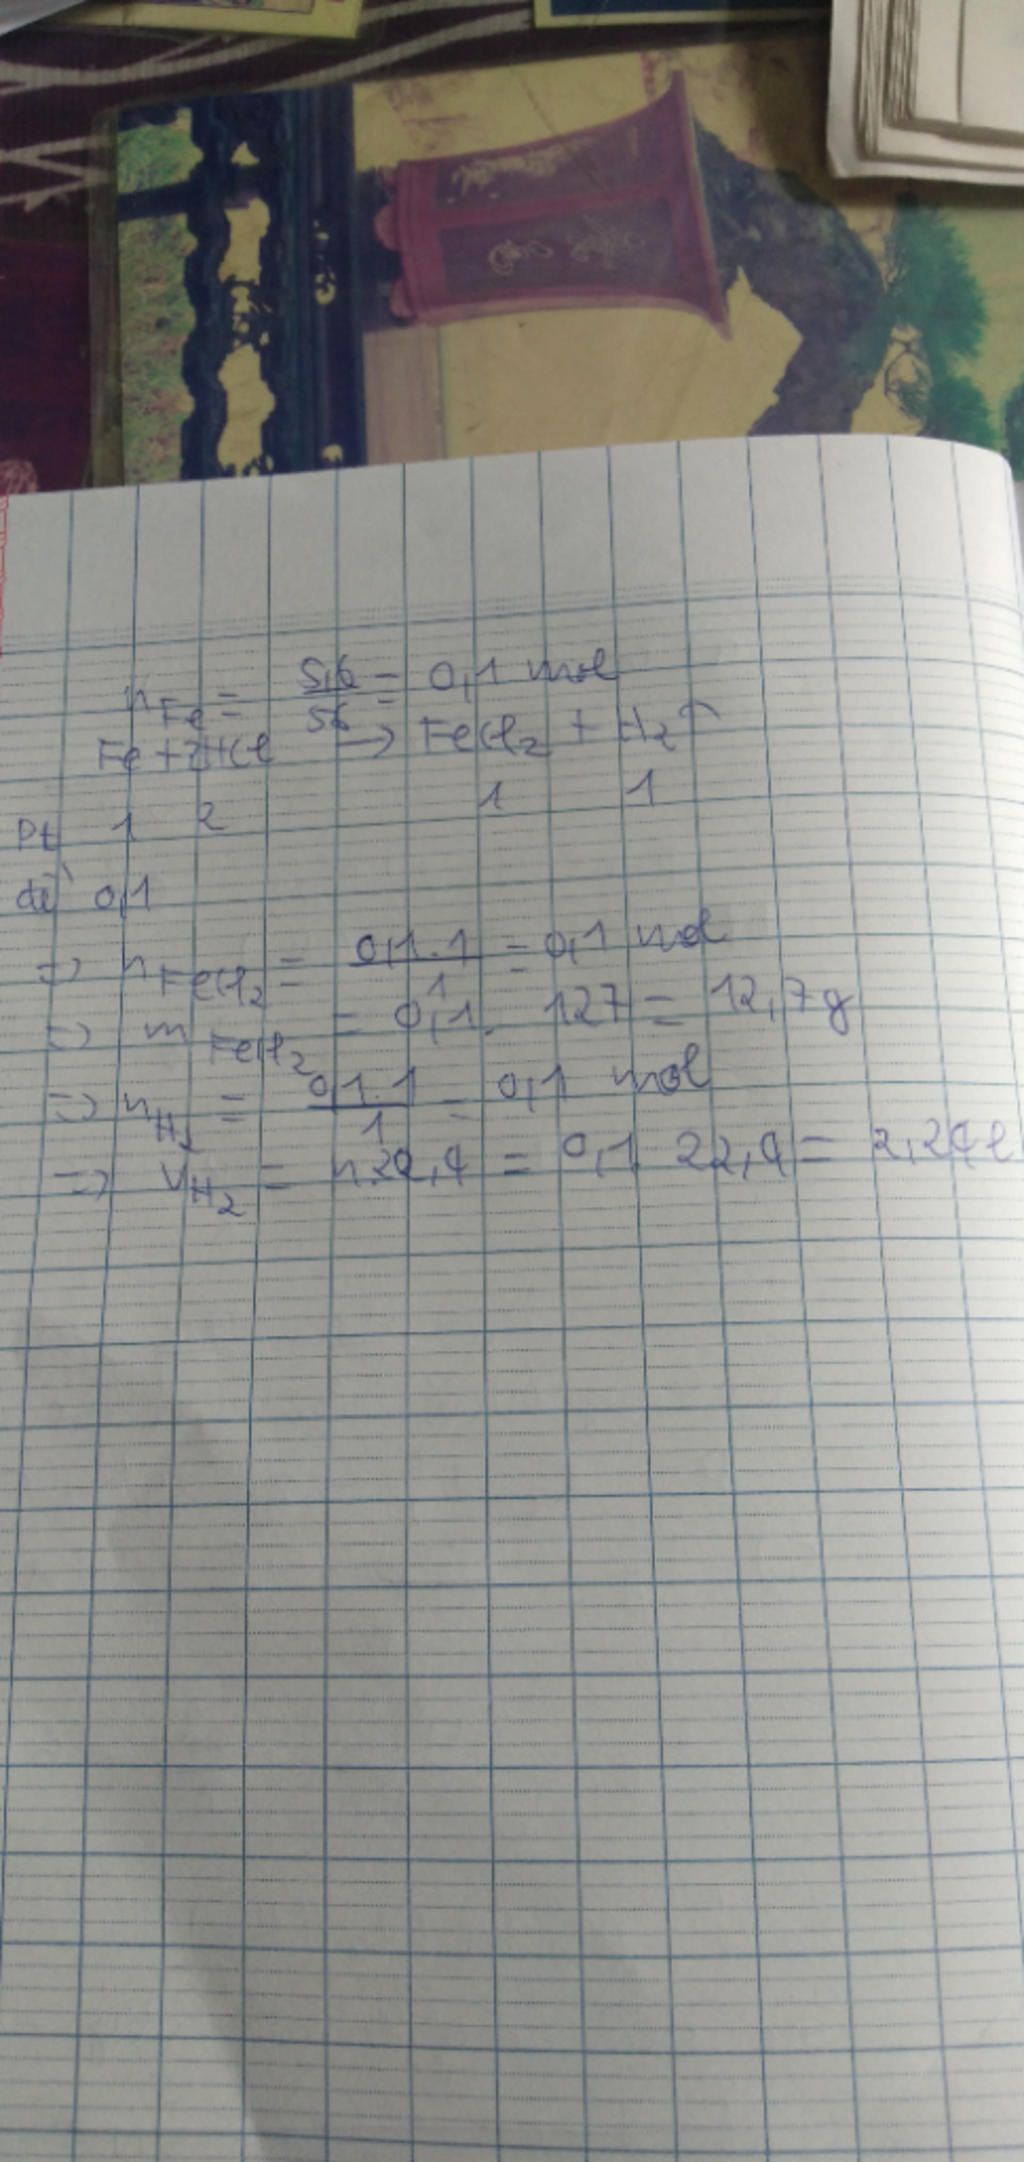 n Fe = 5,6/56 = 0,1 mol
Fe + 2HCl → FeCl2 + H2↑
Pt 1 2 1 1
đề 0,1
=> n FeCl2 = 0,1.1/1 = 0,1 mol
=> m FeCl2 = 0,1. 127 = 12,7g
=> nH2 = 0,1.1/1 = 0,1 mol
=> VH2 = n.22,4 = 0,1 22,4 = 2,24l